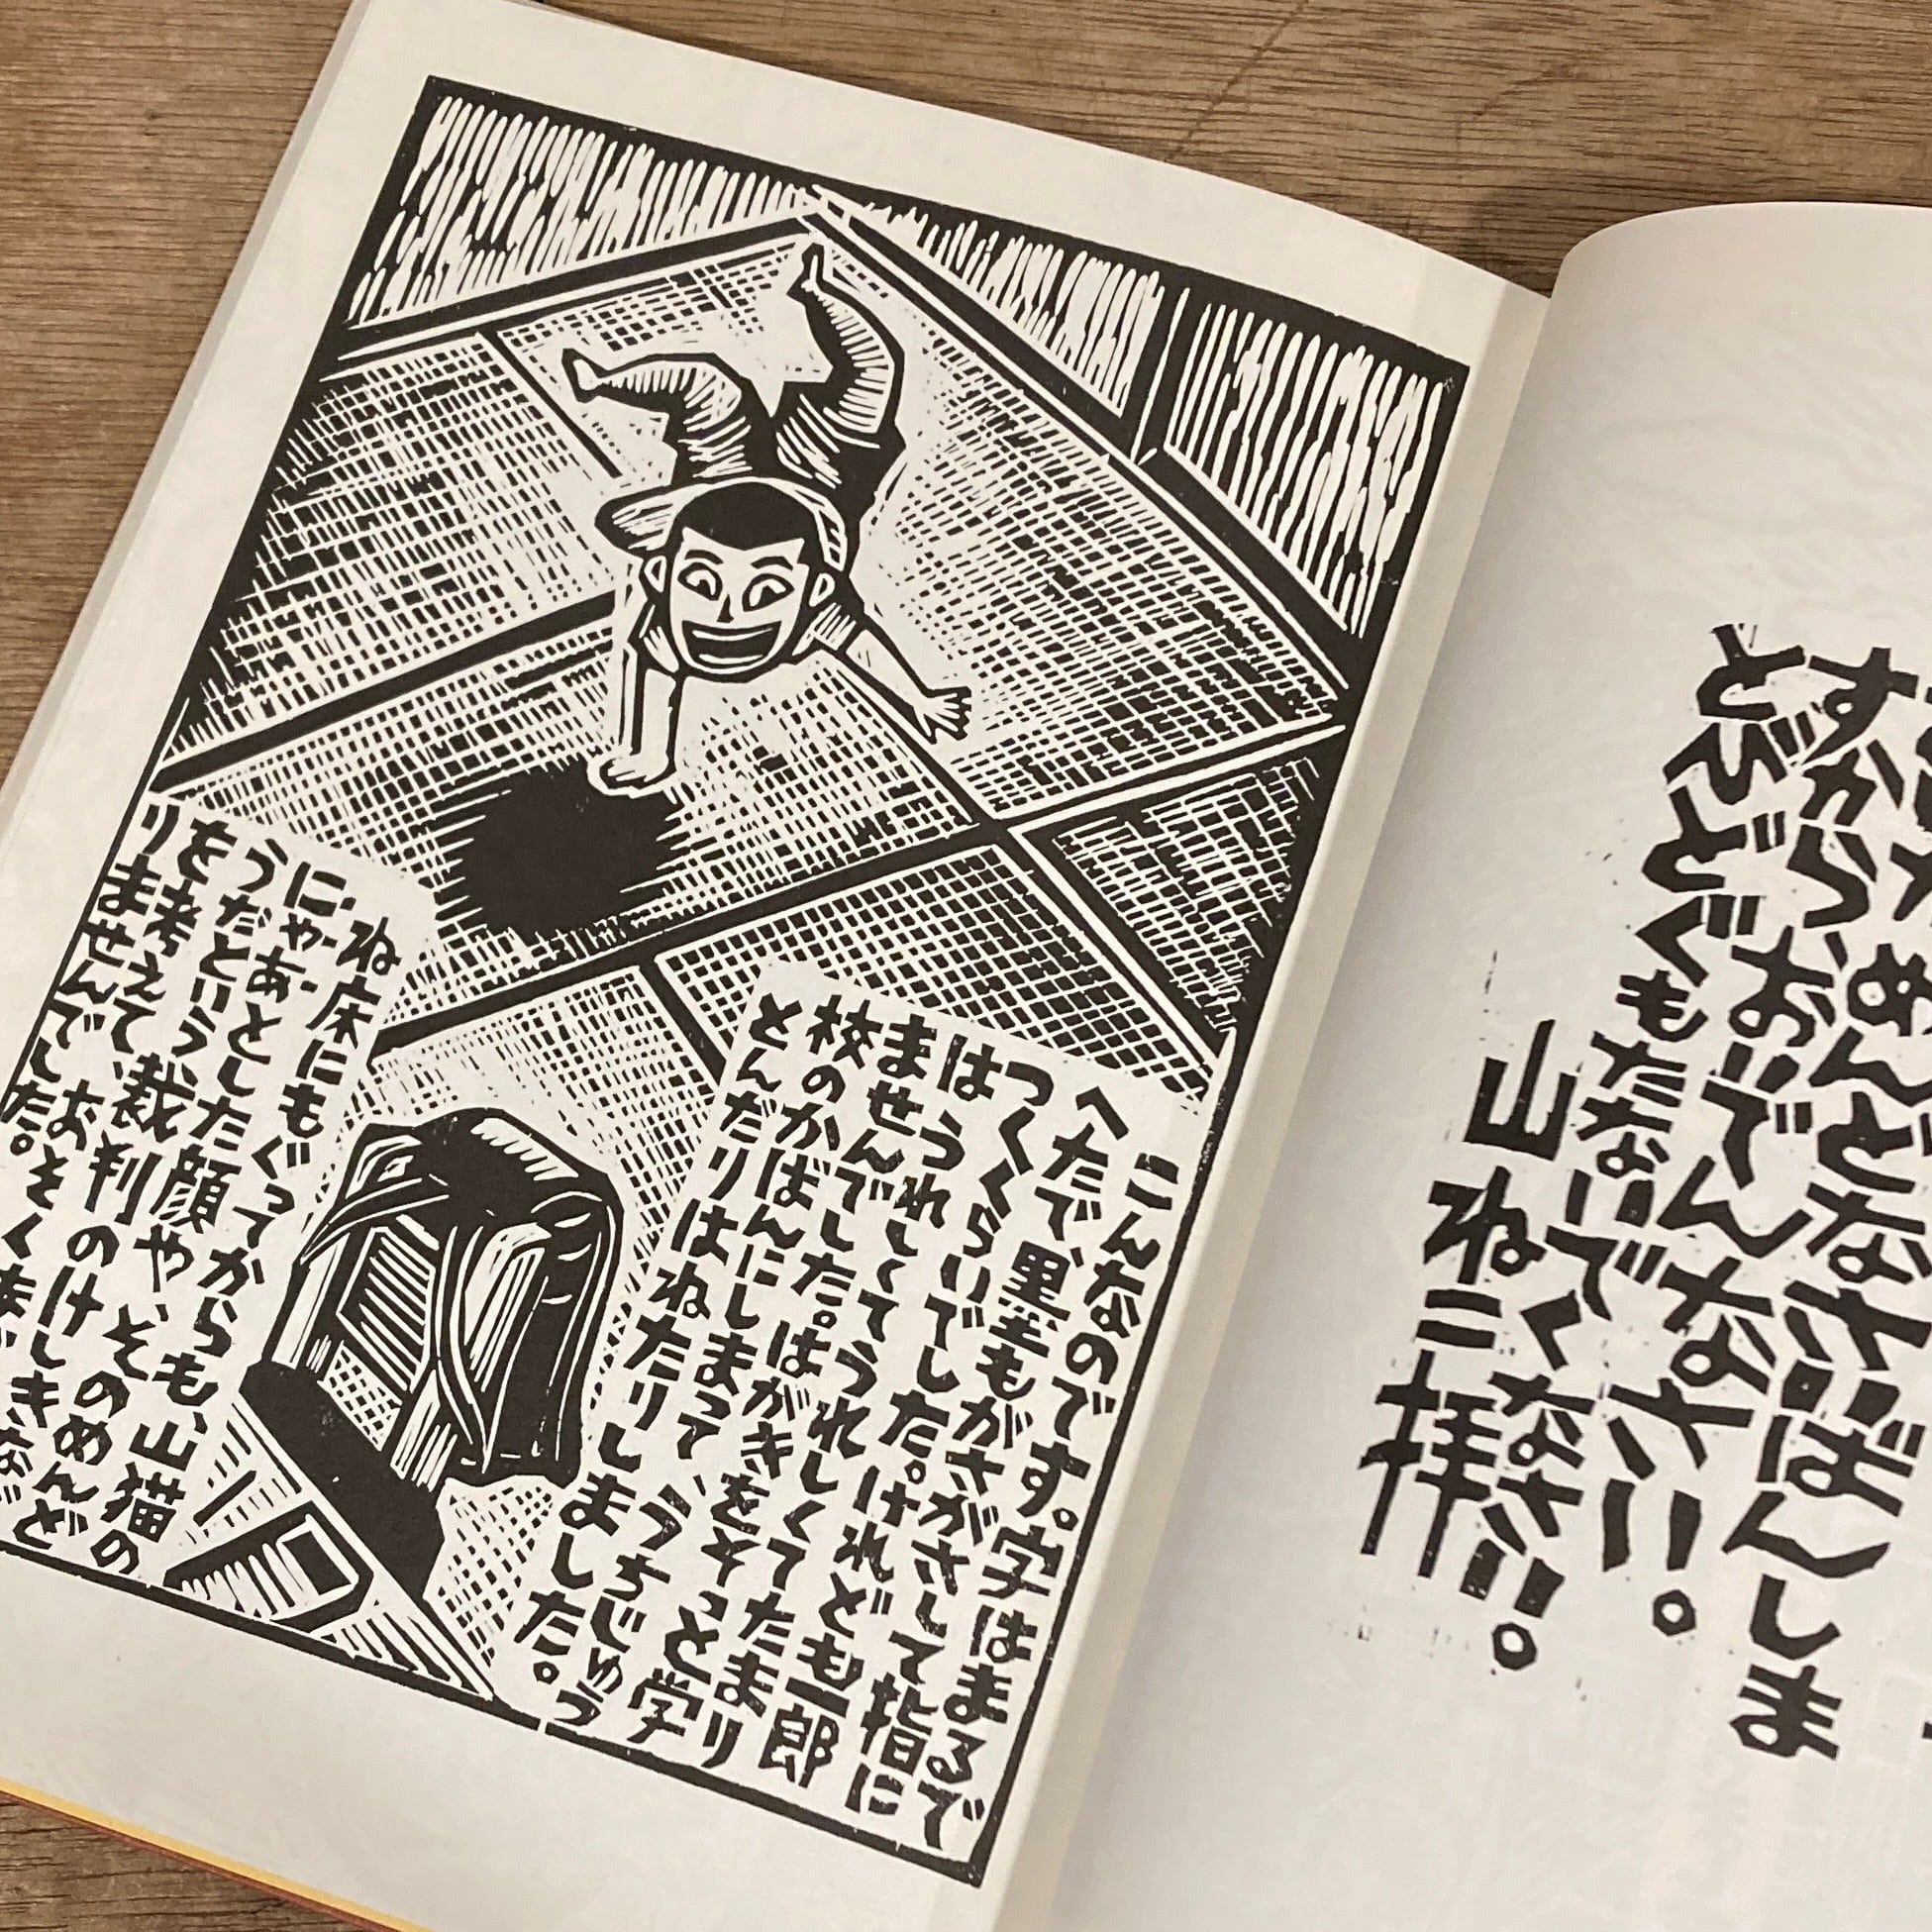 めんどなさいばんしま
すから、おいでんなさい。
とびどぐもたないでくなさい。
山ねこ拝
こんなのです。字はまるで
へたで、墨もがさがさして指に
つくくらいでした。けれども一郎
はうれしくてうれしくてたまり
ませんでした。はがきをそっと学
校のかばんにしまって、うちじゅう
とんだりはねたりしました。
ね床にもぐってからも、山猫の
にゃあとした顔や、そのめんど
うだという裁判のけしきなど
を考えて、おそくま
りませんでした。